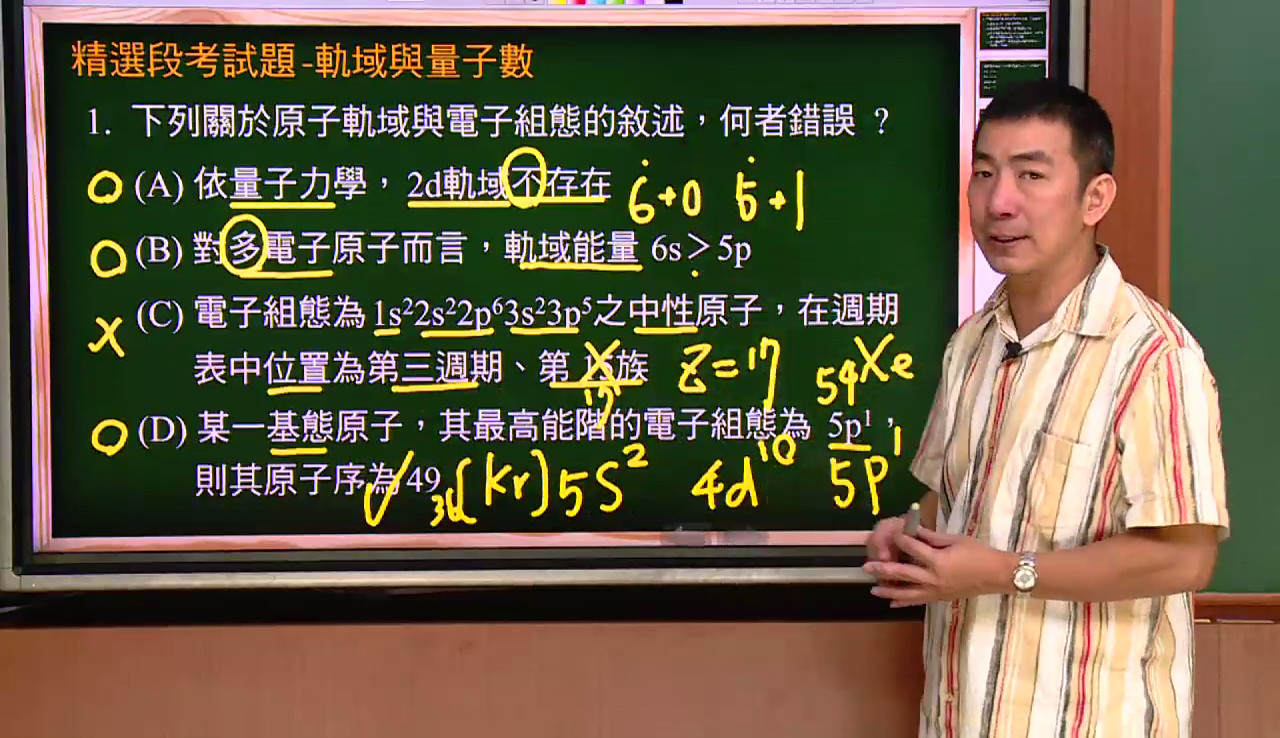 精選段考試題-軌域與量子數
1. 下列關於原子軌域與電子組態的敘述，何者錯誤 ？
O (A) 依量子力學， 2d軌域不存在 6+0 5+1
O (B) 對多電子原子而言，軌域能量 6s＞5p
X (C) 電子組態為 1s²2s²2p⁶3s²3p⁵之中性原子，在週期
表中位置為第三週期、第 15族 Z=17 54Xe
17
O (D) 某一基態原子，其最高能階的電子組態為 5p¹，
則其原子序為49 36[Kr]5S² 4d¹⁰ 5P¹